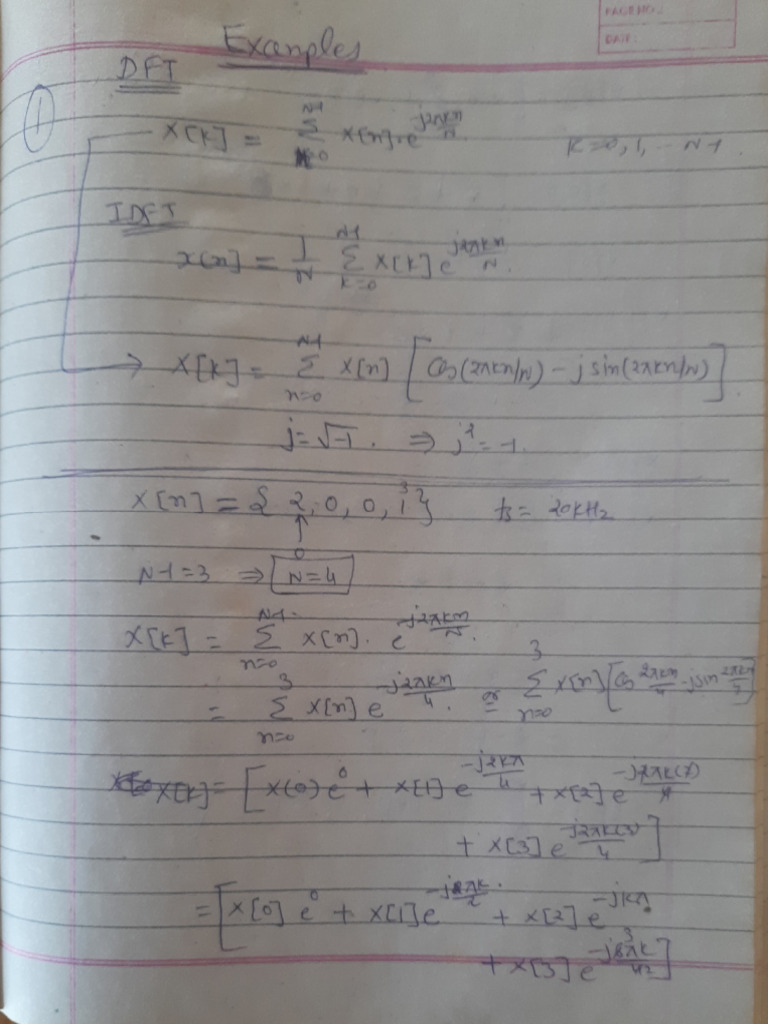 PAGE NO.:
DATE:
Examples
DFT
① X[k] = Σ_{n=0}^{N-1} x[n]. e^{-j2πkn/N} k=0,1,--N-1.
IDFT
x(n] = 1/N Σ_{k=0}^{N-1} X[k] e^{j2πkn/N}.
→ X[k] = Σ_{n=0}^{N-1} x[n] [Cos(2πkn/N) - j sin(2πkn/N)]
j=√-1. ⇒ j²=-1.
x[n] = { 2, 0, 0, 1 } fs = 20kHz
↑ 0 3
N-1=3 ⇒ N=4
X[k] = Σ_{n=0}^{N-1} x[n]. e^{-j2πkn/N}.
= Σ_{n=0}^{3} x[n] e^{-j2πkn/4}. or = Σ_{n=0}^{3} x[n] [Cos 2πkn/4 - jsin 2πkn/4]
X[k] = [ x(0) e^0 + x[1] e^{-j2kπ/4} + x[2] e^{-j2πk(2)/4}
+ x[3] e^{-j2πk(3)/4} ]
= [ x[0] e^0 + x[1] e^{-jπk/2} + x[2] e^{-jkπ}
+ x[3] e^{-j3πk/2} ]